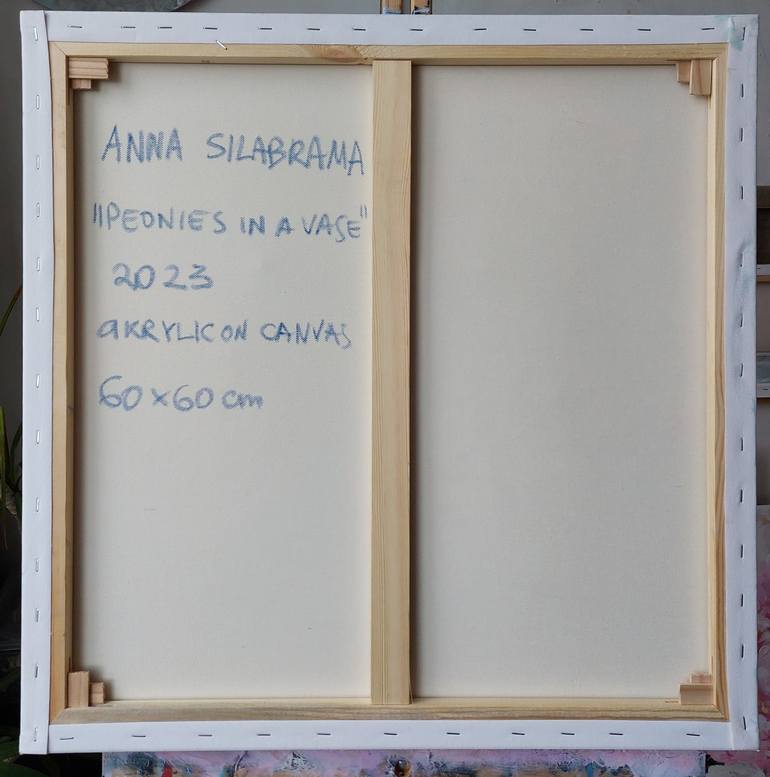 ANNA SILABRAMA
"PEONIES IN A VASE"
2023
aKRYLIC ON CANVAS
60x60 cm